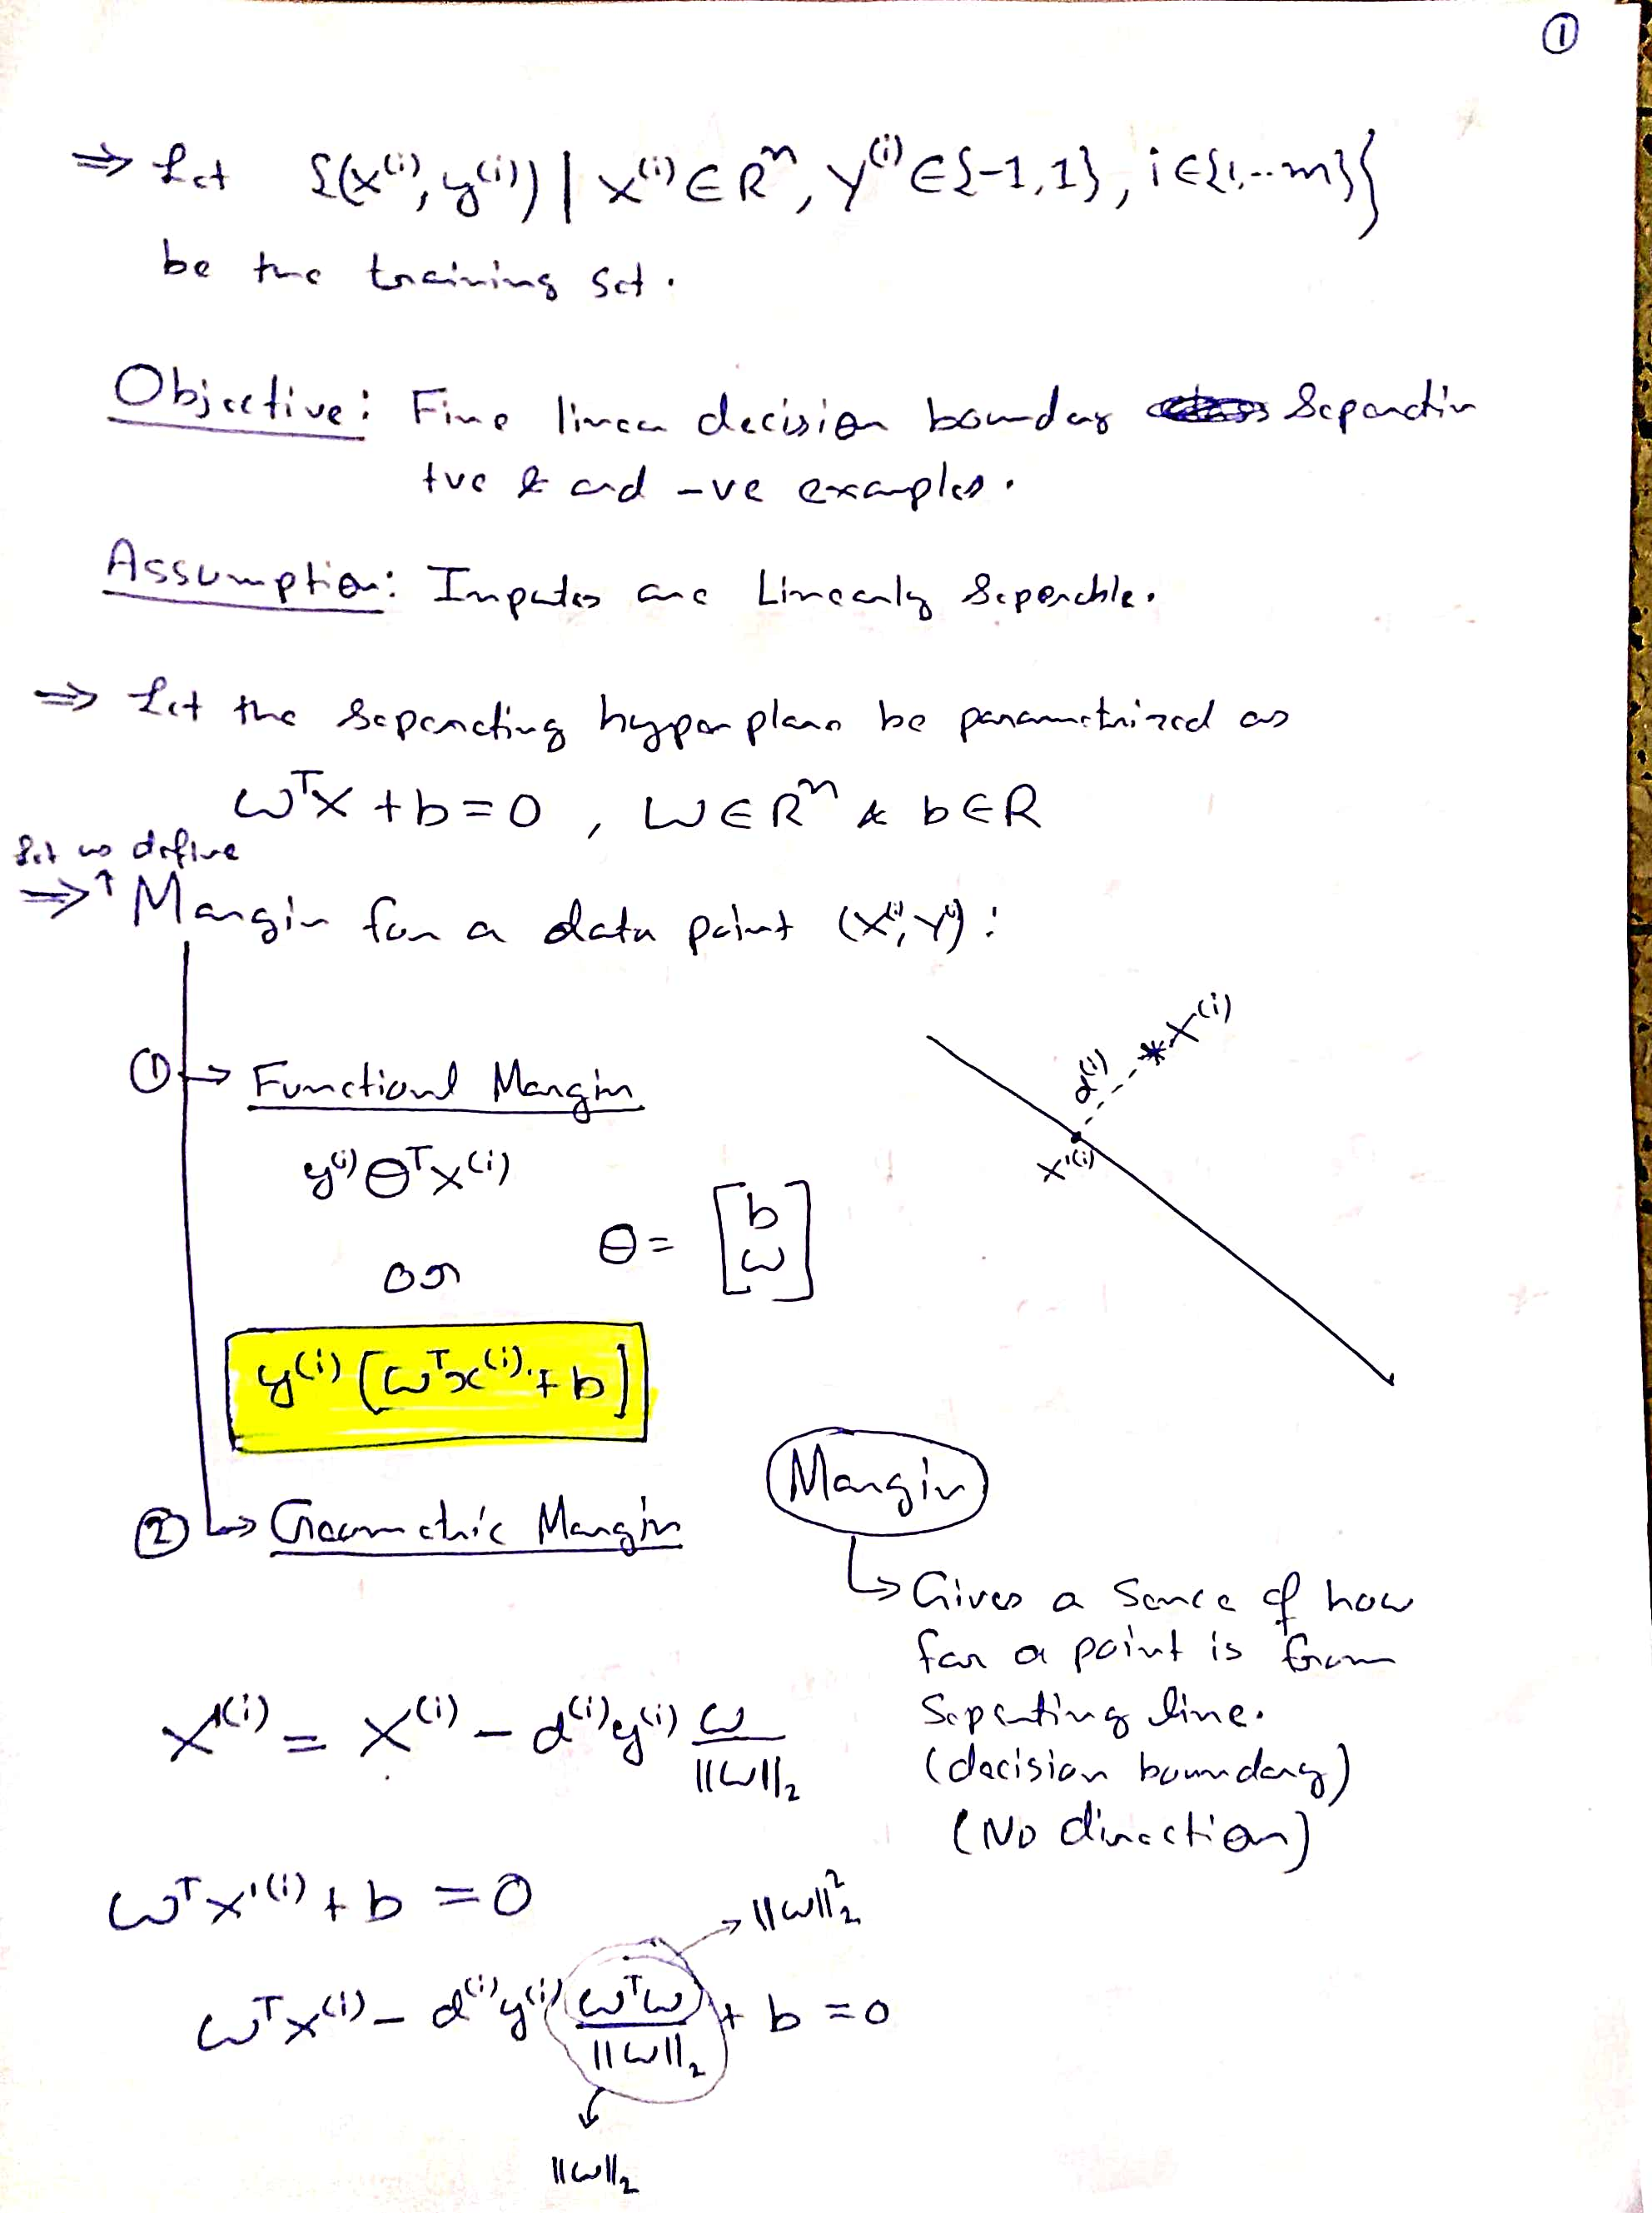 ①
⇒ Let {(x⁽ⁱ⁾, y⁽ⁱ⁾) | x⁽ⁱ⁾ ∈ Rⁿ, Y⁽ⁱ⁾ ∈ {-1, 1}, i ∈ {1,..m}}
be the training set.
Objective: Fine linear decision boundary Separatin
+ve & and -ve examples.
Assumption: Inputs are Linearly Seperable.
⇒ Let the Seperating hyperplane be parametrized as
ωᵀx + b = 0 , W ∈ Rⁿ & b ∈ R
Let us define
⇒ ↑ Margin for a data point (x⁽ⁱ⁾, Y⁽ⁱ⁾) :
① → Functional Margin
y⁽ⁱ⁾ θᵀx⁽ⁱ⁾
or
θ = [b ω]
y⁽ⁱ⁾ [ωᵀx⁽ⁱ⁾ + b]
x⁽ⁱ⁾
d⁽ⁱ⁾
x'⁽ⁱ⁾
② → Geometric Margin
Margin
↳ Gives a Sence of how
far a point is from
Seperating line.
(decision boundary)
(No direction)
x'⁽ⁱ⁾ = x⁽ⁱ⁾ - d⁽ⁱ⁾y⁽ⁱ⁾ ω / ||ω||₂
ωᵀx'⁽ⁱ⁾ + b = 0
→ ||ω||₂²
ωᵀx⁽ⁱ⁾ - d⁽ⁱ⁾y⁽ⁱ⁾ ωᵀω / ||ω||₂ + b = 0
||ω||₂